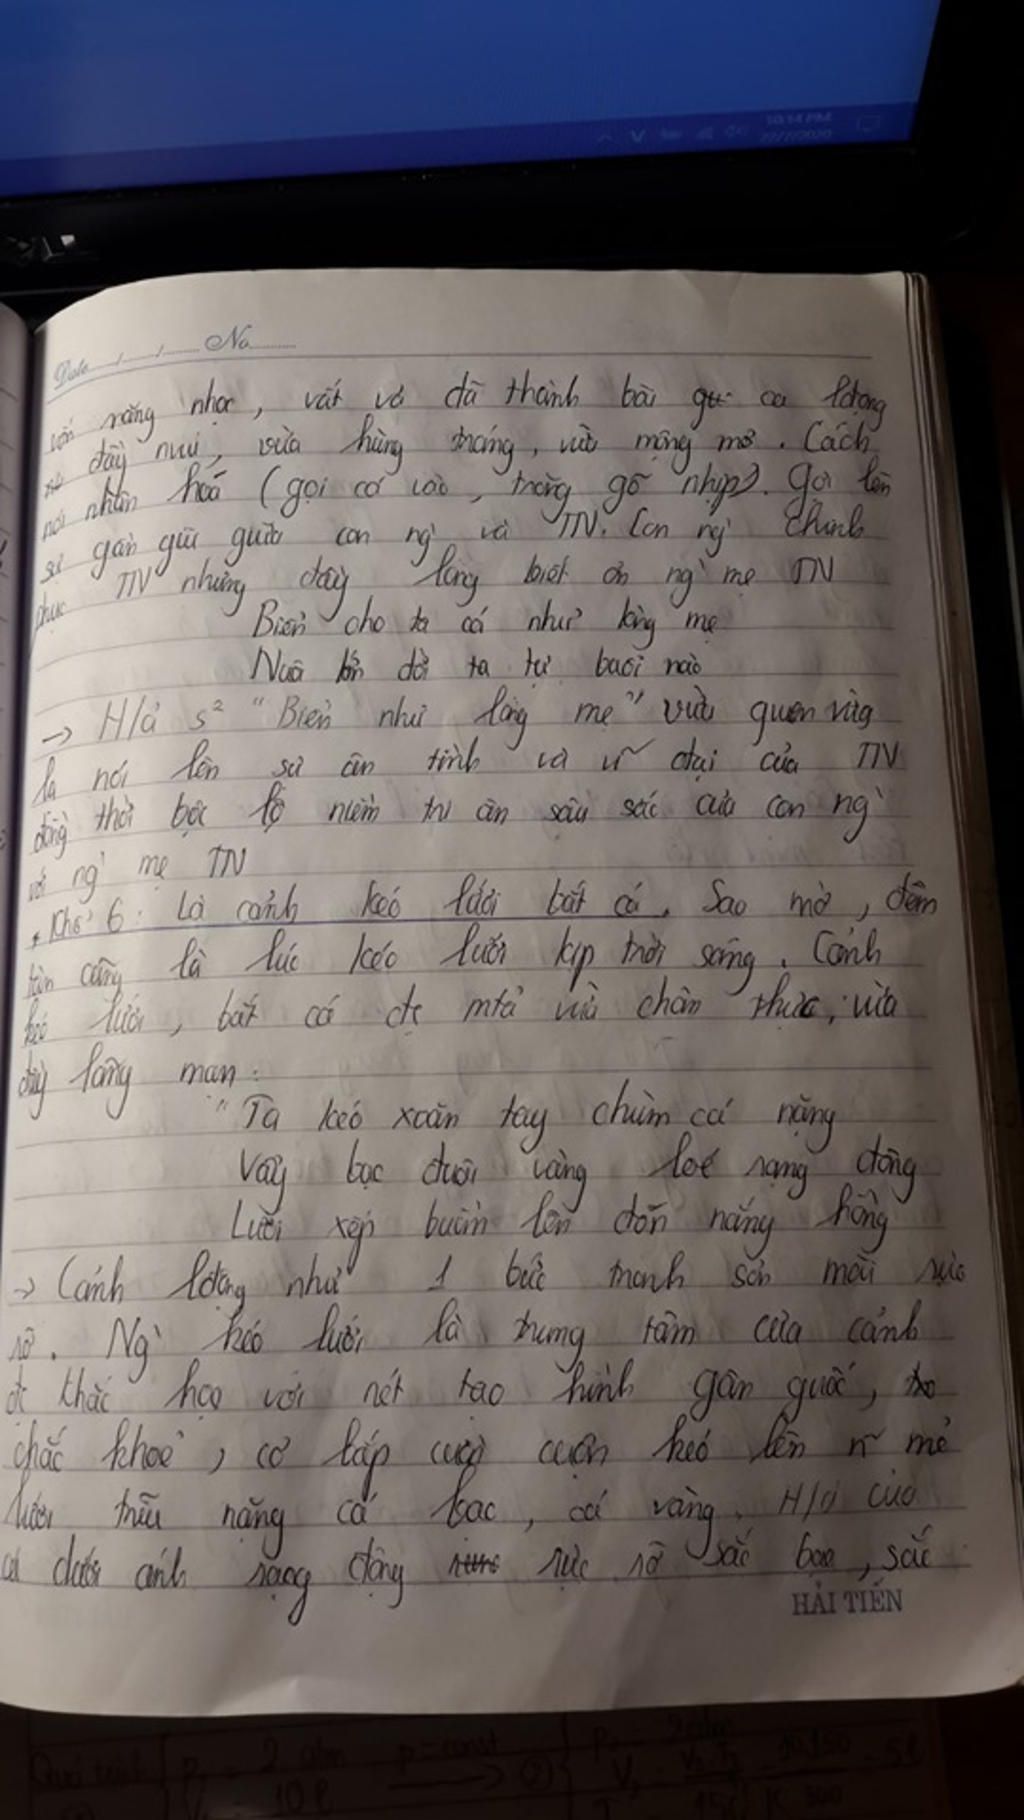 10:14 PM
22/7/2020
Date....../....../......... No............
vốn nặng nhọc, vất vả đã thành bài ca lđộng
đầy nui, vừa hùng tráng, vừa mộng mơ. Cách
nói nhân hoá (gọi cá vào, trăng gõ nhịp). Gợi lên
sự gần gũi giữa con ng' và TN. Con ng' chinh
phục TN nhưng đầy lòng biết ơn ng' mẹ TN
Biển cho ta cá như lòng mẹ
Nuôi lớn đời ta tự buổi nào
→ H/ả s² "Biển như lòng mẹ" vừa quen vừa
lạ nói lên sự ân tình và vĩ đại của TN
đồng thời bộc lộ niềm tri ân sâu sắc của con ng'
với ng' mẹ TN
* Khổ 6: Là cảnh kéo lưới bắt cá. Sao mờ, đêm
tàn cũng là lúc kéo lưới kịp trời sáng. Cảnh
kéo lưới, bắt cá đc mtả vừa chân thực, vừa
đầy lãng mạn:
"Ta kéo xoăn tay chùm cá nặng
Vẩy bạc đuôi vàng loé rạng đông
Lưới xếp buồm lên đón nắng hồng
→ Cảnh lđộng như 1 bức tranh sơn mài rực
rỡ. Ng' kéo lưới là trung tâm của cảnh
đc khắc hoạ với nét tạo hình gân guốc,
chắc khoẻ, cơ bắp cuộn kéo lên n~ mẻ
lưới trĩu nặng cá bạc, cá vàng. H/ả của
cá dưới ánh rạng đông rực rỡ sắc bạc, sắc
HẢI TIẾN
2 atm p=const
10 l